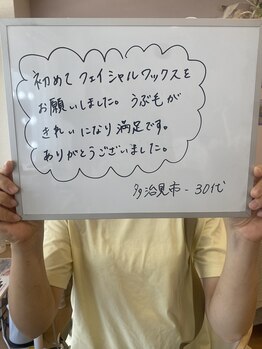 初めてフェイシャルワックスを
お願いしました。うぶ毛が
きれいになり満足です。
ありがとうございました。
多治見市-30代